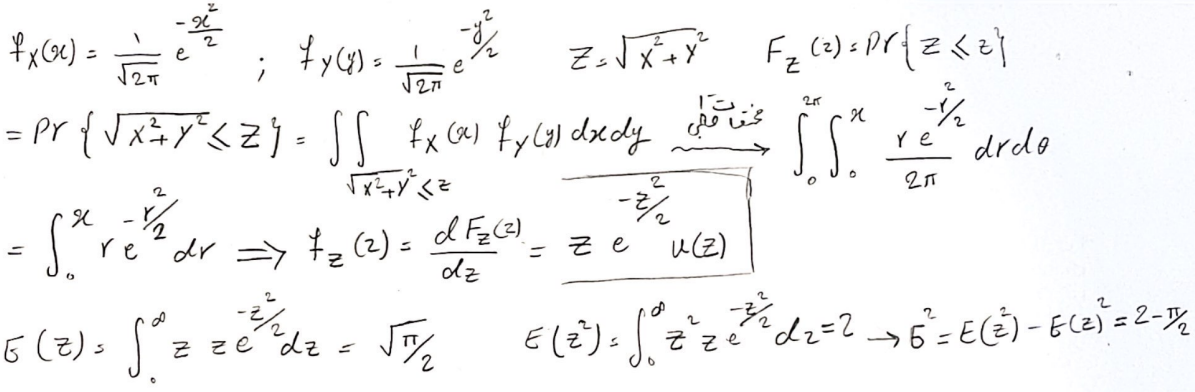 f_X(x) = 1/√2π e^(-x²/2) ; f_Y(y) = 1/√2π e^(-y²/2) Z = √X²+Y² F_Z(z) = Pr{Z ≤ z}
= Pr{√X²+Y² ≤ Z} = ∬_(√X²+Y² ≤ z) f_X(x) f_Y(y) dx dy مختصات قطبی ⟶ ∫₀^2π ∫₀^x r e^(-r²/2) / 2π dr dθ
= ∫₀^x r e^(-r²/2) dr ⟹ f_Z(z) = dF_Z(z)/dz = z e^(-z²/2) u(z)
E(Z) = ∫₀^∞ z z e^(-z²/2) dz = √π/2 E(z²) = ∫₀^∞ z² z e^(-z²/2) dz = 2 → σ² = E(z²) - E(z)² = 2 - π/2